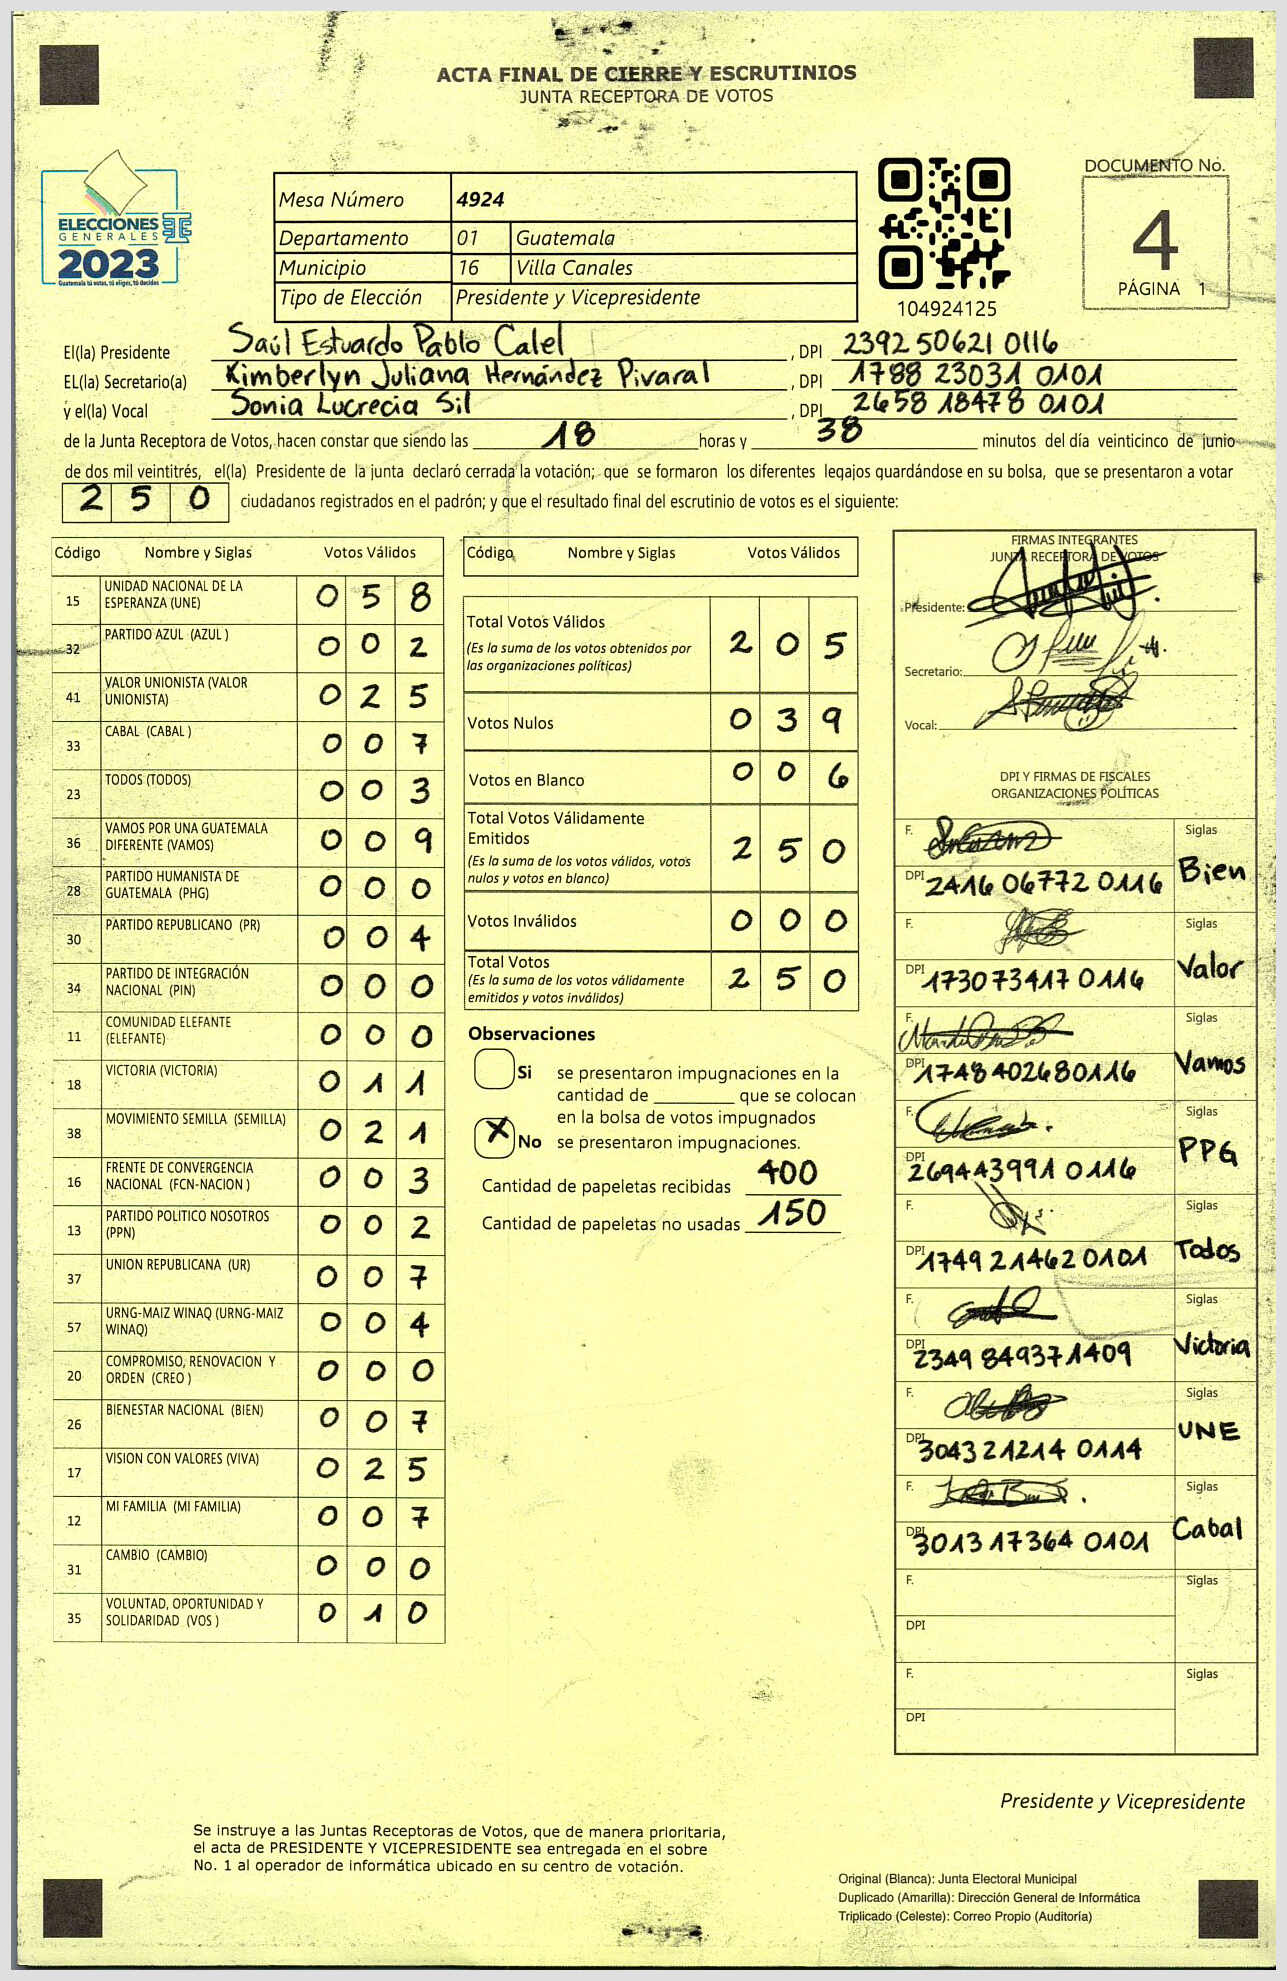 ACTA FINAL DE CIERRE Y ESCRUTINIOS
JUNTA RECEPTORA DE VOTOS
ELECCIONES
GENERALES
2023
Guatemala tú votas, tú eliges, tú decides
Mesa Número 4924
Departamento 01 Guatemala
Municipio 16 Villa Canales
Tipo de Elección Presidente y Vicepresidente
104924125
DOCUMENTO No.
4
PÁGINA 1
El(la) Presidente Saúl Estuardo Pablo Calel , DPI 2392 50621 0116
EL(la) Secretario(a) Kimberlyn Juliana Hernández Pivaral , DPI 1788 23031 0101
y el(la) Vocal Sonia Lucrecia Sil , DPI 2658 18478 0101
de la Junta Receptora de Votos, hacen constar que siendo las 18 horas y 38 minutos del día veinticinco de junio
de dos mil veintitrés, el(la) Presidente de la junta declaró cerrada la votación; que se formaron los diferentes legajos guardándose en su bolsa, que se presentaron a votar
2 5 0 ciudadanos registrados en el padrón; y que el resultado final del escrutinio de votos es el siguiente:
Código Nombre y Siglas Votos Válidos
15 UNIDAD NACIONAL DE LA ESPERANZA (UNE) 0 5 8
32 PARTIDO AZUL (AZUL ) 0 0 2
41 VALOR UNIONISTA (VALOR UNIONISTA) 0 2 5
33 CABAL (CABAL ) 0 0 7
23 TODOS (TODOS) 0 0 3
36 VAMOS POR UNA GUATEMALA DIFERENTE (VAMOS) 0 0 9
28 PARTIDO HUMANISTA DE GUATEMALA (PHG) 0 0 0
30 PARTIDO REPUBLICANO (PR) 0 0 4
34 PARTIDO DE INTEGRACIÓN NACIONAL (PIN) 0 0 0
11 COMUNIDAD ELEFANTE (ELEFANTE) 0 0 0
18 VICTORIA (VICTORIA) 0 1 1
38 MOVIMIENTO SEMILLA (SEMILLA) 0 2 1
16 FRENTE DE CONVERGENCIA NACIONAL (FCN-NACION ) 0 0 3
13 PARTIDO POLITICO NOSOTROS (PPN) 0 0 2
37 UNION REPUBLICANA (UR) 0 0 7
57 URNG-MAIZ WINAQ (URNG-MAIZ WINAQ) 0 0 4
20 COMPROMISO, RENOVACION Y ORDEN (CREO ) 0 0 0
26 BIENESTAR NACIONAL (BIEN) 0 0 7
17 VISION CON VALORES (VIVA) 0 2 5
12 MI FAMILIA (MI FAMILIA) 0 0 7
31 CAMBIO (CAMBIO) 0 0 0
35 VOLUNTAD, OPORTUNIDAD Y SOLIDARIDAD (VOS ) 0 1 0
Código Nombre y Siglas Votos Válidos
Total Votos Válidos 2 0 5
(Es la suma de los votos obtenidos por
las organizaciones políticas)
Votos Nulos 0 3 9
Votos en Blanco 0 0 6
Total Votos Válidamente
Emitidos 2 5 0
(Es la suma de los votos válidos, votos
nulos y votos en blanco)
Votos Inválidos 0 0 0
Total Votos 2 5 0
(Es la suma de los votos válidamente
emitidos y votos inválidos)
Observaciones
Si se presentaron impugnaciones en la
cantidad de ________ que se colocan
en la bolsa de votos impugnados
X No se presentaron impugnaciones.
Cantidad de papeletas recibidas 400
Cantidad de papeletas no usadas 150
FIRMAS INTEGRANTES
JUNTA RECEPTORA DE VOTOS
Presidente:
Secretario:
Vocal:
DPI Y FIRMAS DE FISCALES
ORGANIZACIONES POLÍTICAS
F. Siglas
DPI 2416 06772 0116 Bien
F. Siglas
DPI 1730 73417 0116 Valor
F. Siglas
DPI 1748 40268 0116 Vamos
F. Siglas
DPI 2694 43991 0116 PPG
F. Siglas
DPI 1749 21462 0101 Todos
F. Siglas
DPI 2349 84937 1409 Victoria
F. Siglas
DPI 3043 21214 0114 UNE
F. Siglas
DPI 3013 17364 0101 Cabal
F. Siglas
DPI
F. Siglas
DPI
Presidente y Vicepresidente
Se instruye a las Juntas Receptoras de Votos, que de manera prioritaria,
el acta de PRESIDENTE Y VICEPRESIDENTE sea entregada en el sobre
No. 1 al operador de informática ubicado en su centro de votación.
Original (Blanca): Junta Electoral Municipal
Duplicado (Amarilla): Dirección General de Informática
Triplicado (Celeste): Correo Propio (Auditoría)